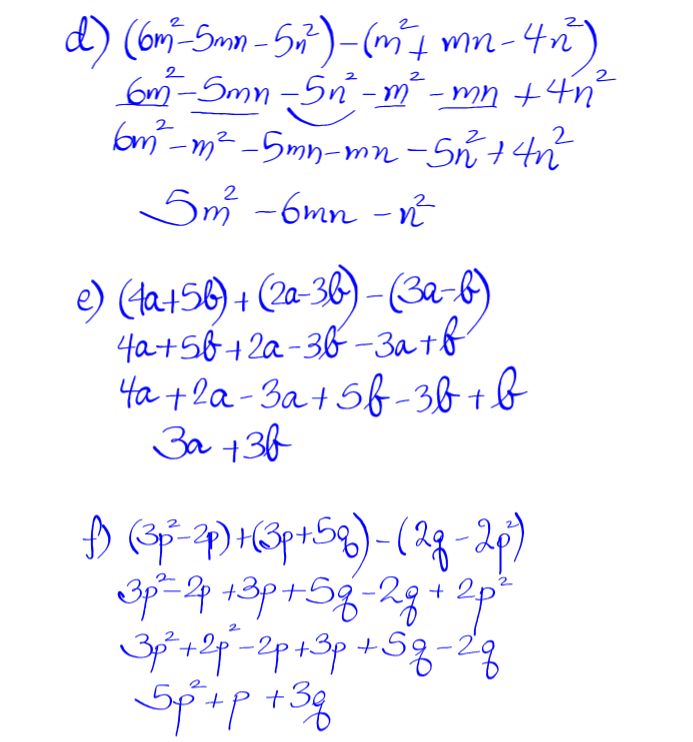 d) (6m²-5mn-5n²)-(m²+mn-4n²)
6m²-5mn-5n²-m²-mn+4n²
6m²-m²-5mn-mn-5n²+4n²
5m²-6mn-n²
e) (4a+5b)+(2a-3b)-(3a-b)
4a+5b+2a-3b-3a+b
4a+2a-3a+5b-3b+b
3a+3b
f) (3p²-2p)+(3p+5q)-(2q-2p²)
3p²-2p+3p+5q-2q+2p²
3p²+2p²-2p+3p+5q-2q
5p²+p+3q